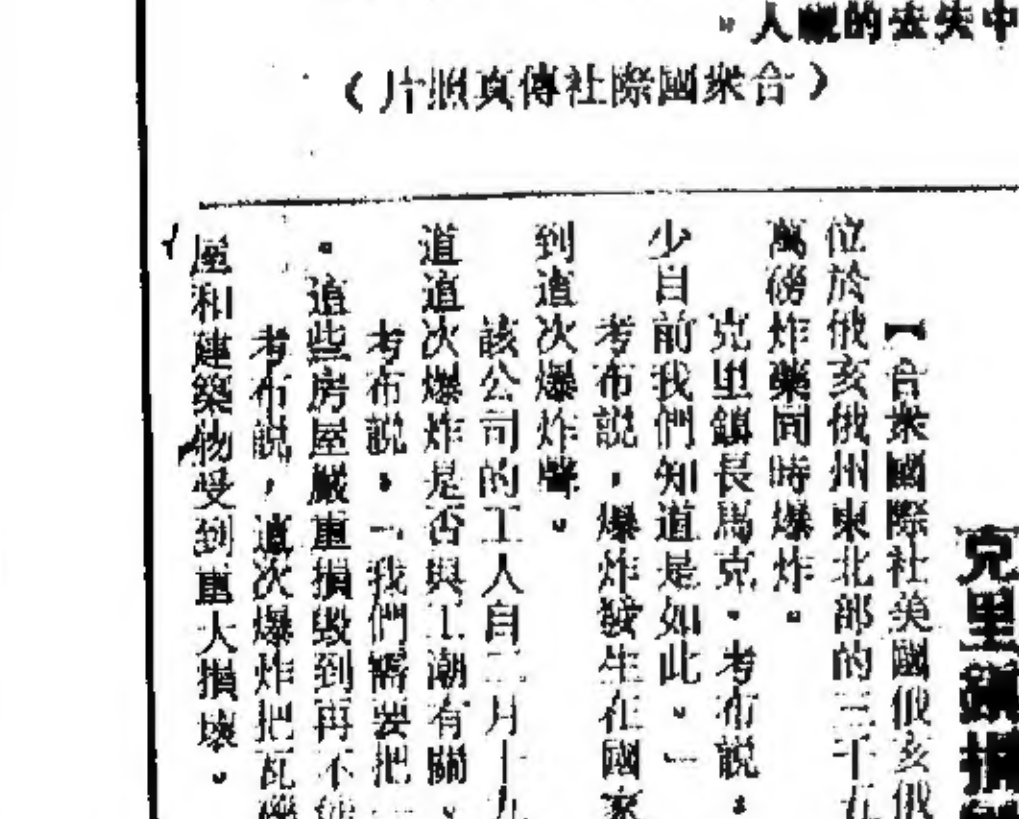 中失去的親人。
（合衆國際社傳真照片）
克里鎮損
【合衆國際社美國俄亥俄
位於俄亥俄州東北部的三千五
萬磅炸藥同時爆炸。
克里鎮長馬克・考布説，
少目前我們知道是如此。」
考布説，爆炸發生在國家
到這次爆炸聲。
該公司的工人自二月十九
道這次爆炸是否與工潮有關。
考布説，「我們需要把一
。這些房屋嚴重損毀到再不能
考布説，這次爆炸把瓦礫
屋和建築物受到重大損壞。